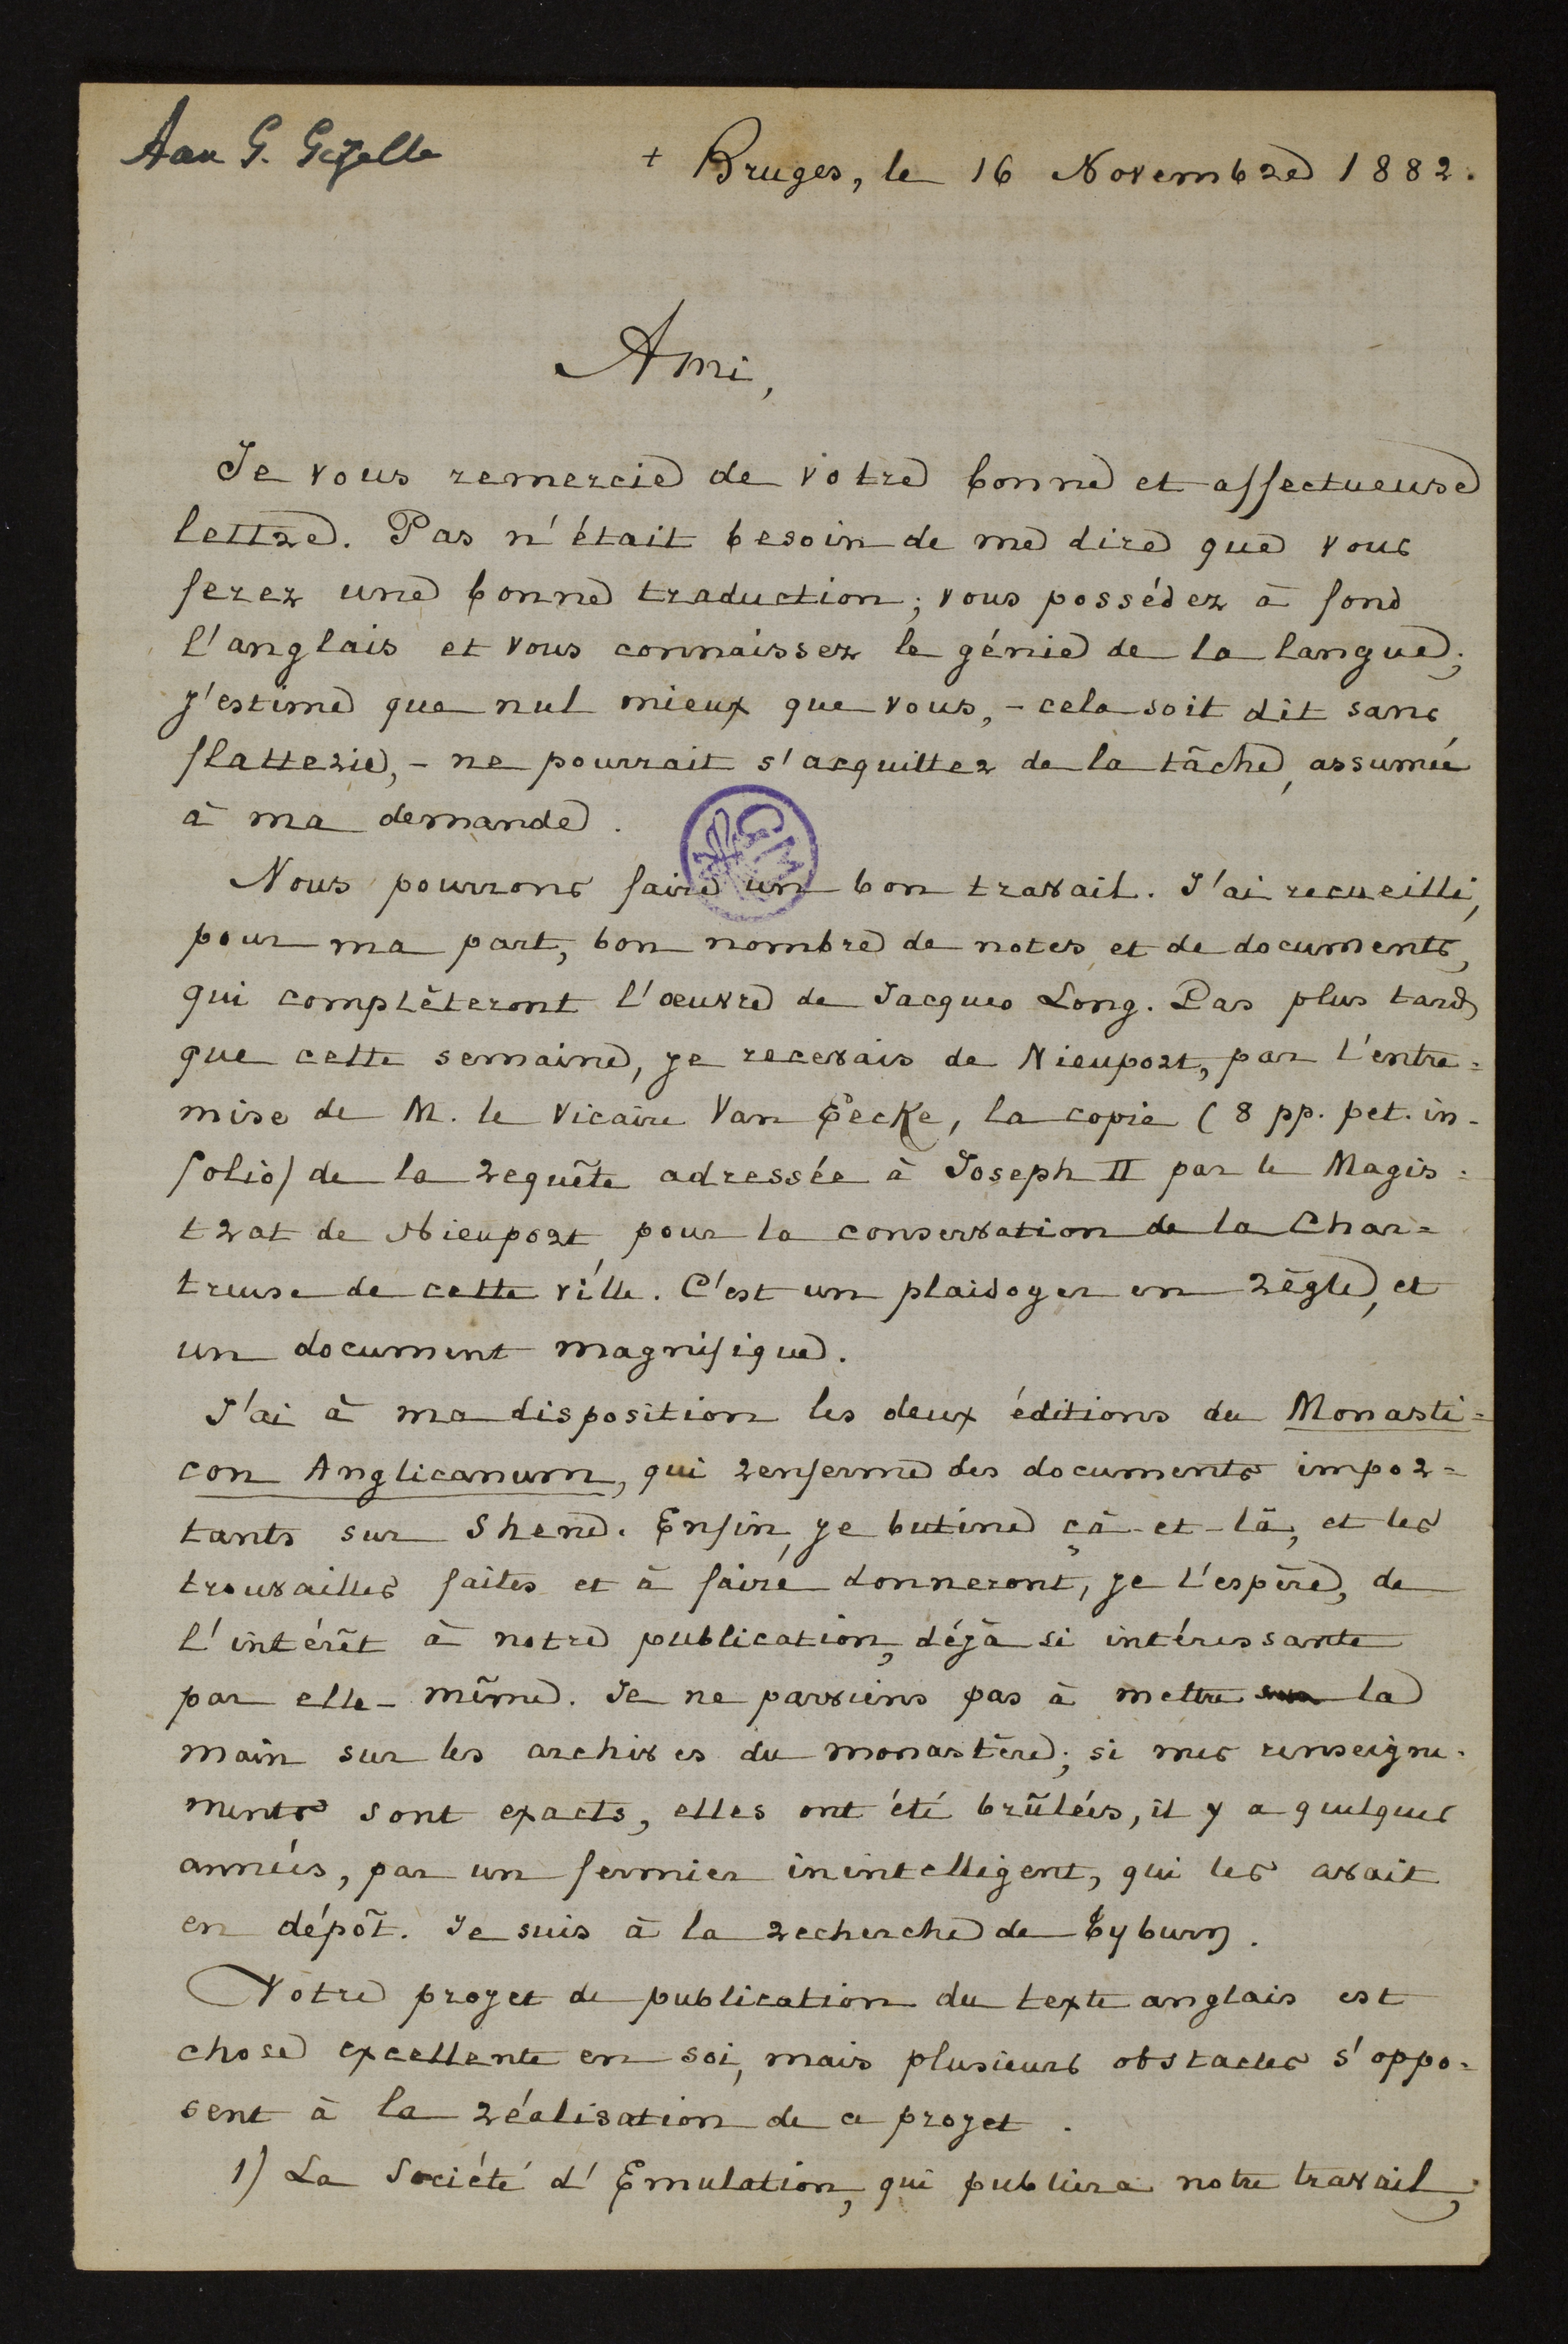 Aan G. Gezelle
+ Bruges, le 16 Novembre 1882.
Ami,
Je vous remercie de votre bonne et affectueuse
lettre. Pas n'était besoin de me dire que vous
ferez une bonne traduction; vous possédez à fond
l'anglais et vous connaissez le génie de la langue;
j'estime que nul mieux que vous, - cela soit dit sans
flatterie, - ne pourrait s'acquitter de la tâche, assumée
à ma demande.
Nous pourrons faire un bon travail. J'ai recueilli,
pour ma part, bon nombre de notes et de documents,
qui complèteront l'œuvre de Jacques Long. Pas plus tard
que cette semaine, je recevais de Nieuport, par l'entre=
mise de M. le Vicaire Van Eecke, la copie (8 pp. pet. in-
folio) de la requête adressée à Joseph II par le Magis=
trat de Nieuport pour la conservation de la Char=
treuse de cette ville. C'est un plaidoyer en règle, et
un document magnifique.
J'ai à ma disposition les deux éditions du Monasti=
con Anglicanum, qui renferme des documents impor=
tants sur Shene. Enfin, je butine çà-et-là, et les
trouvailles faites et à faire donneront, je l'espère, de
l'intérêt à notre publication, déjà si intéressante
par elle-même. Je ne parviens pas à mettre la
main sur les archives du monastère; si mes renseigne-
ments sont exacts, elles ont été brûlées, il y a quelques
années, par un fermier inintelligent, qui les avait
en dépôt. Je suis à la recherche de Tyburn.
Votre projet de publication du texte anglais est
chose excellente en soi, mais plusieurs obstacles s'oppo=
sent à la réalisation de ce projet.
1) La Société d'Emulation, qui publiera notre travail,